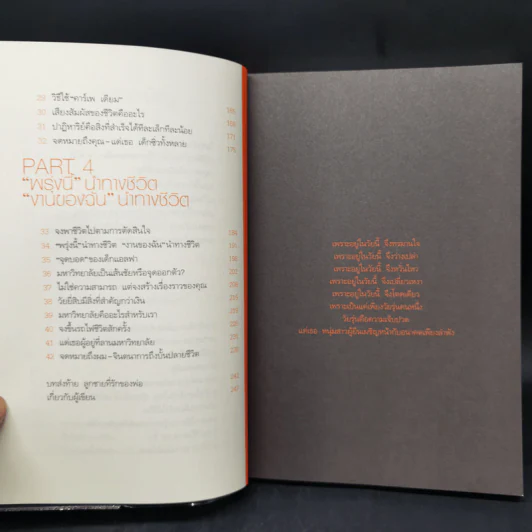 29 วิธีใช้ "คาร์เพ เดียม"
30 เสียงสัมผัสของชีวิตคืออะไร
31 ปาฏิหาริย์คือสิ่งที่สำเร็จได้ทีละเล็กทีละน้อย 171
32 จดหมายถึงคุณ-แด่เธอ เด็กชั่วทั้งหลาย 175
PART 4
"พรุ่งนี้" นำทางชีวิต
"งานของฉัน" นำทางชีวิต
33 จงพาชีวิตไปตามการตัดสินใจ
34 "พรุ่งนี้" นำทางชีวิต "งานของฉัน" นำทางชีวิต
35 "จุดบอด" ของเด็กแอลฟา
36 มหาวิทยาลัยเป็นเส้นชัยหรือจุดออกตัว?
37 ไม่ใช่ความสามารถ แต่จงสร้างเรื่องราวของคุณ
38 วัยยี่สิบมีสิ่งที่สำคัญกว่าเงิน
39 มหาวิทยาลัยคืออะไรสำหรับเรา
40 จงขึ้นรถไฟชีวิตสักครั้ง
41 แด่เธอผู้อยู่ที่ลานมหาวิทยาลัย
42 จดหมายถึงผม-จินตนาการถึงบั้นปลายชีวิต
บทส่งท้าย ลูกชายที่รักของพ่อ 242
เกี่ยวกับผู้เขียน 247
เพราะอยู่ในวัยนี้ จึงหม่นหมองใจ
เพราะอยู่ในวัยนี้ จึงว่างเปล่า
เพราะอยู่ในวัยนี้ จึงหวั่นไหว
เพราะอยู่ในวัยนี้ จึงเปลี่ยวเหงา
เพราะอยู่ในวัยนี้ จึงโดดเดี่ยว
เพราะเป็นแค่เพียงวัยรุ่นคนหนึ่ง
วัยรุ่นคือความเจ็บปวด
แด่เธอ หนุ่มสาวผู้ยืนเผชิญหน้ากับอนาคตเพียงลำพัง